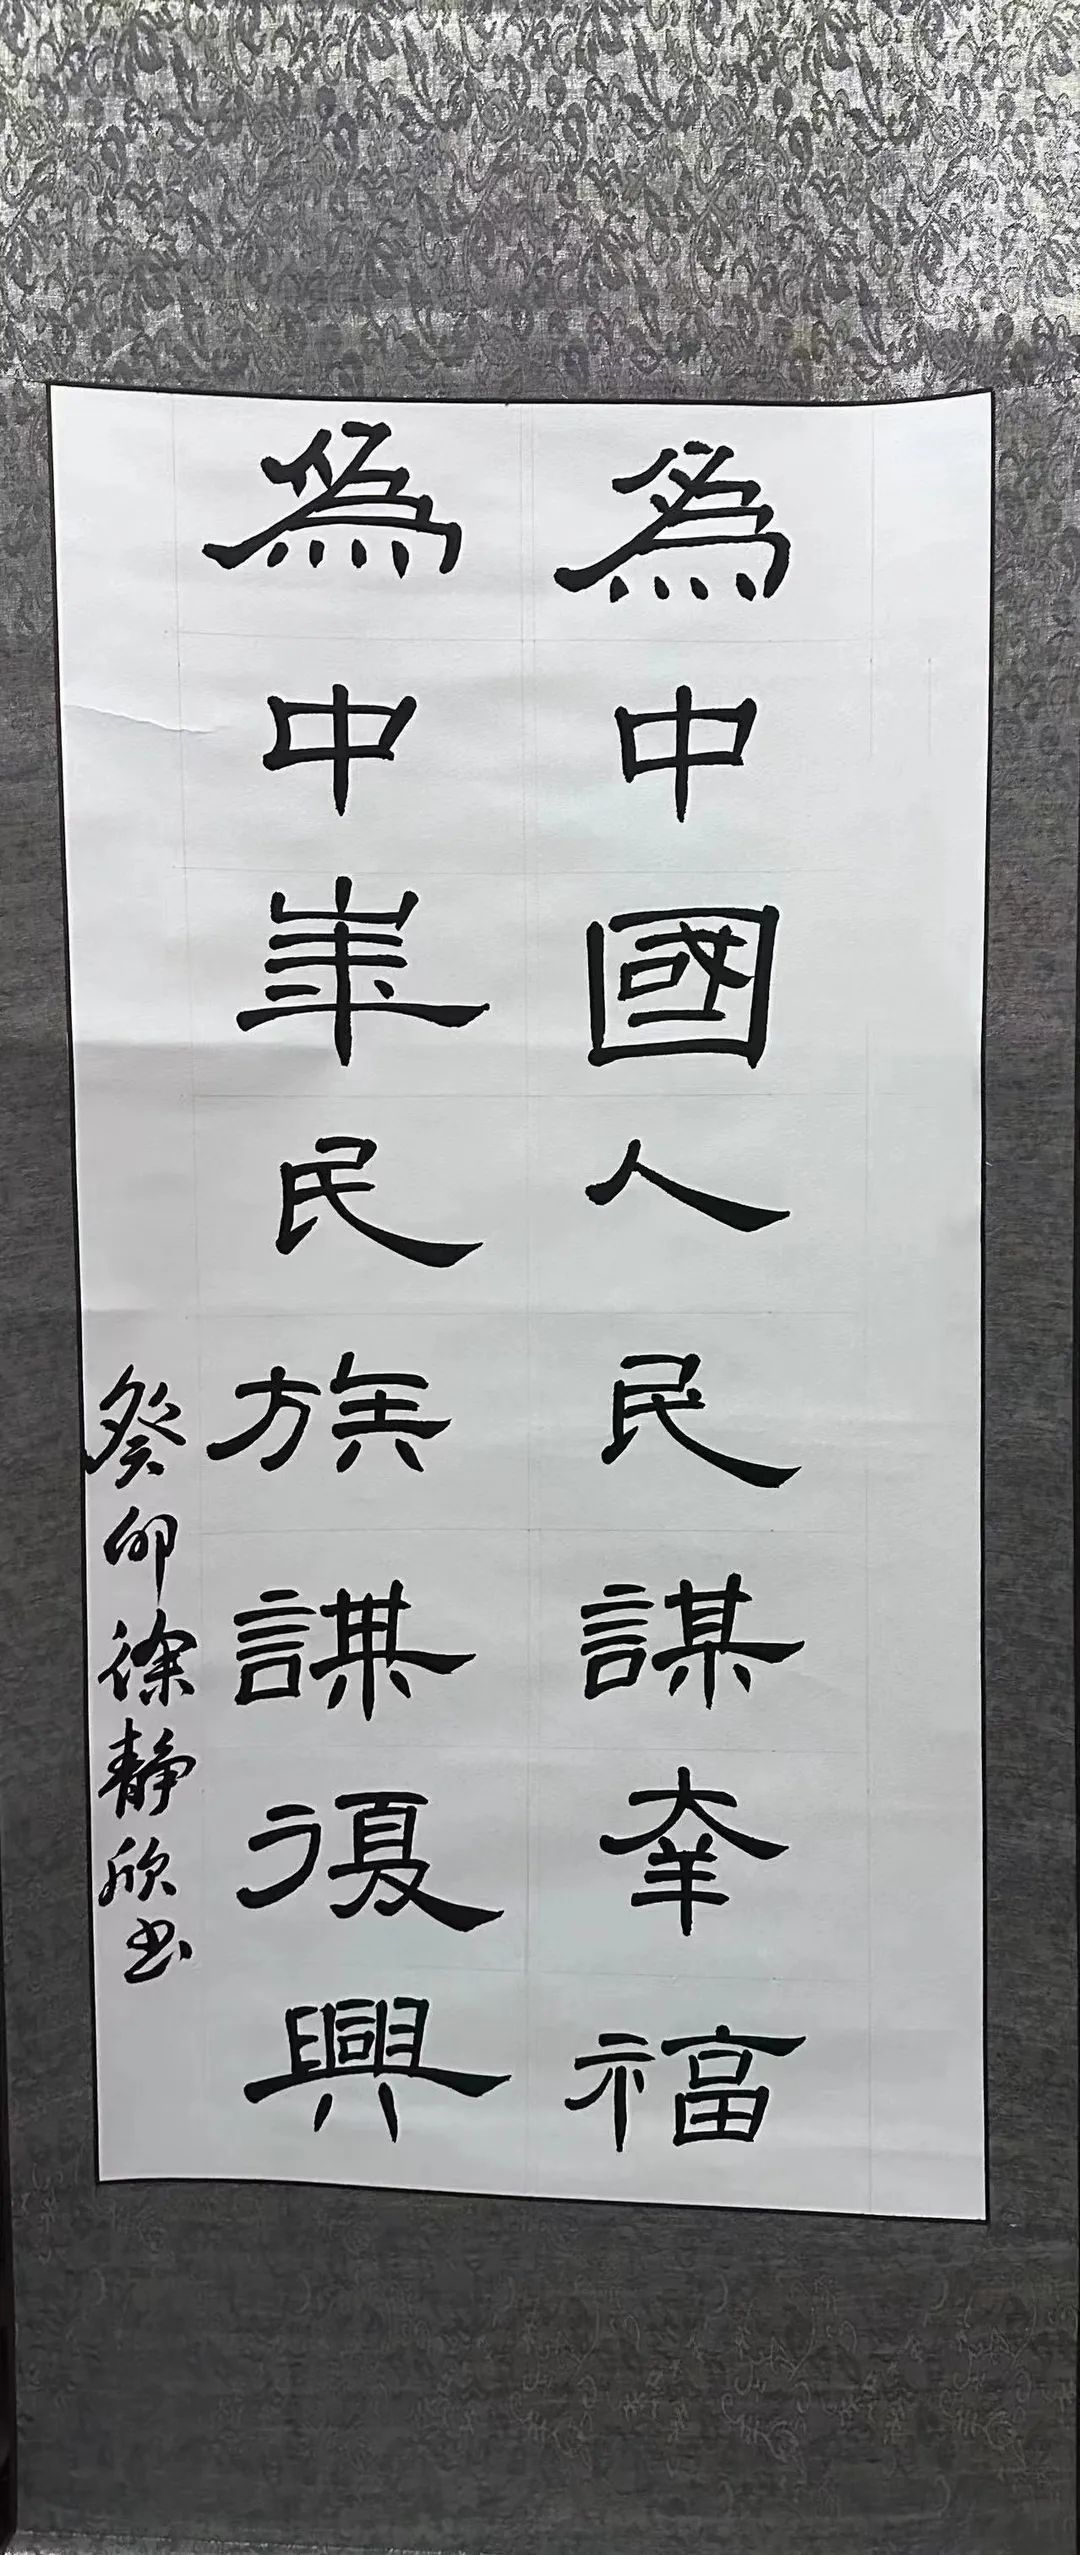 為中國人民謀幸福
為中華民族謀復興
癸卯徐靜欣书